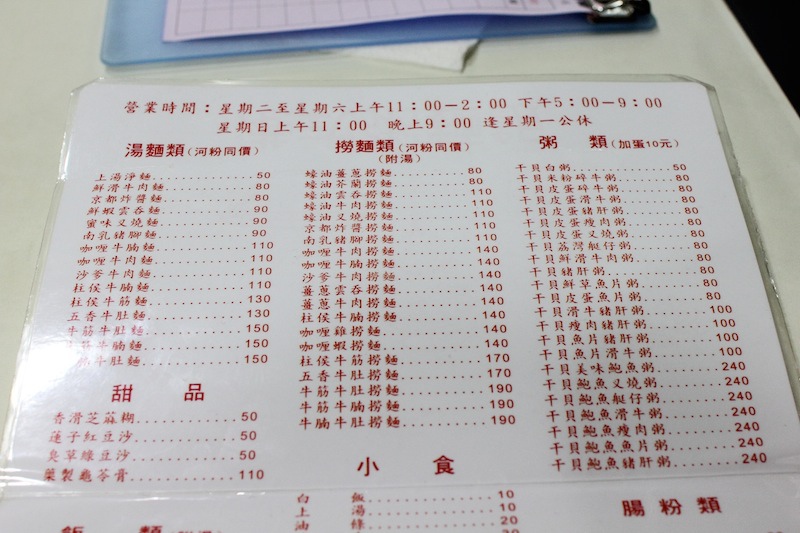 營業時間：星期二至星期六上午11：00－2：00 下午5：00－9：00
星期日上午11：00 晚上9：00 逢星期一公休
湯麵類（河粉同價）
上湯淨麵 50
鮮滑牛肉麵 80
京都炸醬麵 80
鮮蝦雲吞麵 90
蜜味叉燒麵 90
南乳豬腳麵 90
咖哩牛腩麵 110
咖哩牛肉麵 110
沙爹牛肉麵 110
柱侯牛腩麵 110
柱侯牛筋麵 130
五香牛肚麵 130
牛筋牛肚麵 150
牛筋牛腩麵 150
牛肚麵 150
甜品
香滑芝蔴糊 50
蓮子紅豆沙 50
臭草綠豆沙 50
藥製龜苓膏 110
撈麵類（河粉同價）
（附湯）
蠔油薑蔥撈麵 80
蠔油芥蘭撈麵 80
蠔油雲吞撈麵 110
蠔油牛肉撈麵 110
蠔油叉燒撈麵 110
京都炸醬撈麵 110
南乳豬腳撈麵 110
咖哩牛肉撈麵 140
咖哩牛腩撈麵 140
沙爹牛肉撈麵 140
薑蔥雲吞撈麵 140
薑蔥牛肉撈麵 140
柱侯牛腩撈麵 140
咖哩雞撈麵 140
咖哩蝦撈麵 140
柱侯牛筋撈麵 170
五香牛肚撈麵 170
牛筋牛肚撈麵 190
牛筋牛腩撈麵 190
牛腩牛肚撈麵 190
小食
白飯 10
上湯 10
油 20
30
粥類（加蛋10元）
干貝白粥 50
干貝米粉碎牛粥 80
干貝皮蛋碎牛粥 80
干貝皮蛋滑牛粥 80
干貝皮蛋豬肝粥 80
干貝皮蛋瘦肉粥 80
干貝皮蛋叉燒粥 80
干貝荔灣艇仔粥 80
干貝鮮滑牛肉粥 80
干貝豬肝粥 80
干貝鮮草魚片粥 80
干貝皮蛋魚片粥 80
干貝滑牛豬肝粥 100
干貝瘦肉豬肝粥 100
干貝魚片豬肝粥 100
干貝魚片滑牛粥 100
干貝美味鮑魚粥 240
干貝鮑魚叉燒粥 240
干貝鮑魚艇仔粥 240
干貝鮑魚滑牛粥 240
干貝鮑魚瘦肉粥 240
干貝鮑魚魚片粥 240
干貝鮑魚豬肝粥 240
腸粉類
飯類